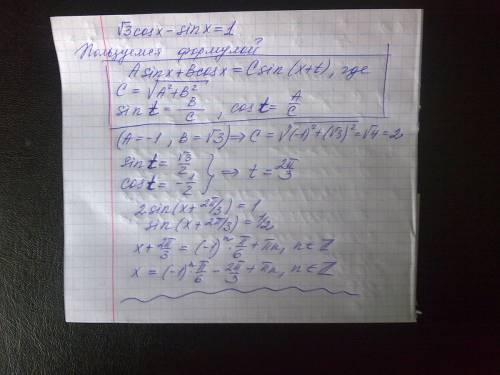 √3cosx - sinx = 1
Пользуемся формулой
Asinx + Bcosx = Csin(x+t), где
C = √(A² + B²)
sint = B/C, cost = A/C
(A = -1, B = √3) ⇒ C = √((-1)² + (√3)²) = √4 = 2
sint = √3/2
cost = -1/2 } ⇒ t = 2π/3
2sin(x + 2π/3) = 1
sin(x + 2π/3) = 1/2
x + 2π/3 = (-1)ⁿ · π/6 + πn, n∈ℤ
x = (-1)ⁿ π/6 - 2π/3 + πn, n∈ℤ